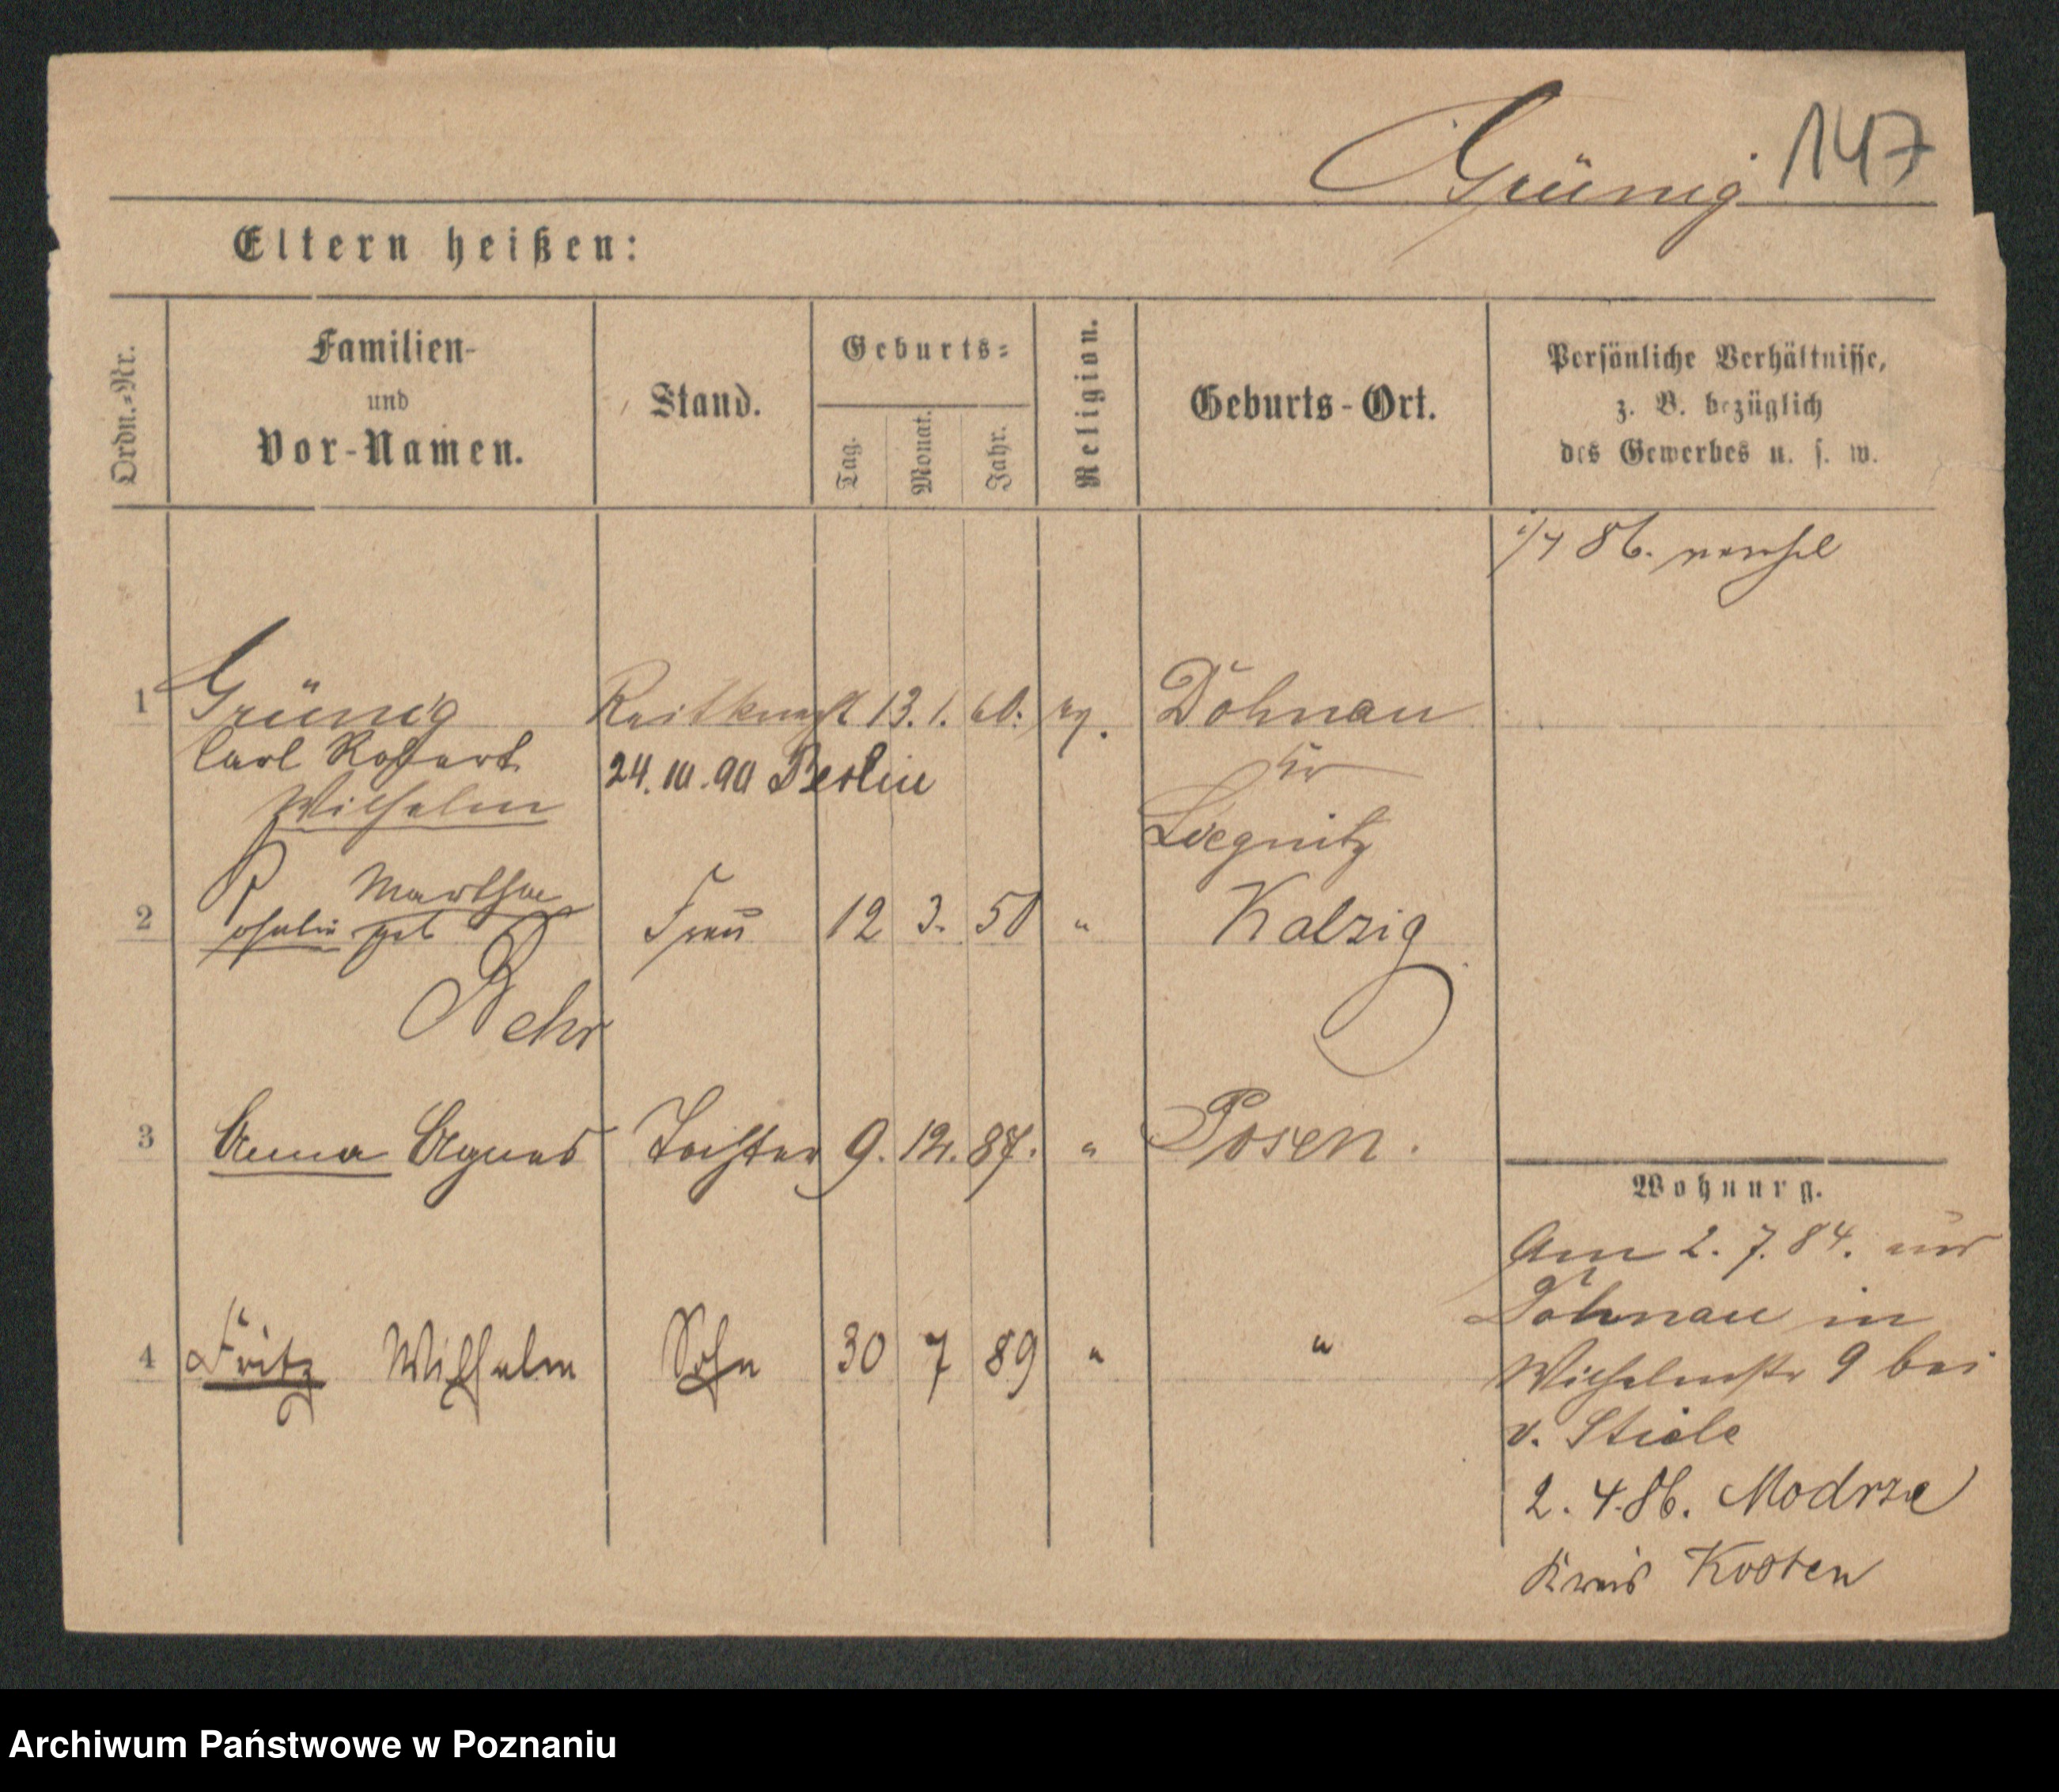 Grünig 147
Eltern heißen:
Ordn.-Nr.
Familien-
und
Vor-Namen.
Stand.
Geburts-
Tag.
Monat.
Jahr.
Religion.
Geburts-Ort.
Persönliche Verhältnisse,
z. B. bezüglich
des Gewerbes u. s. w.
1/4 86.
1 Grünig Reitknecht 13. 1. 60. ev. Dohnau
Carl Robert 24.10.90 Berlin Kr
Wilhelm Liegnitz
Martha
2 Rosalie geb Frau 12 3. 50 " Kalzig
Rehr
3 Anna Agnes Tochter 9. 12. 87. " Posen.
4 Fritz Wilhelm Sohn 30 7 89 " "
Wohnung.
Am 2. 7. 84. aus
Dohnau in
Wilhelmstr 9 bei
v. Stiele
2. 4. 86. Modrze
Kreis Kosten
Archiwum Państwowe w Poznaniu